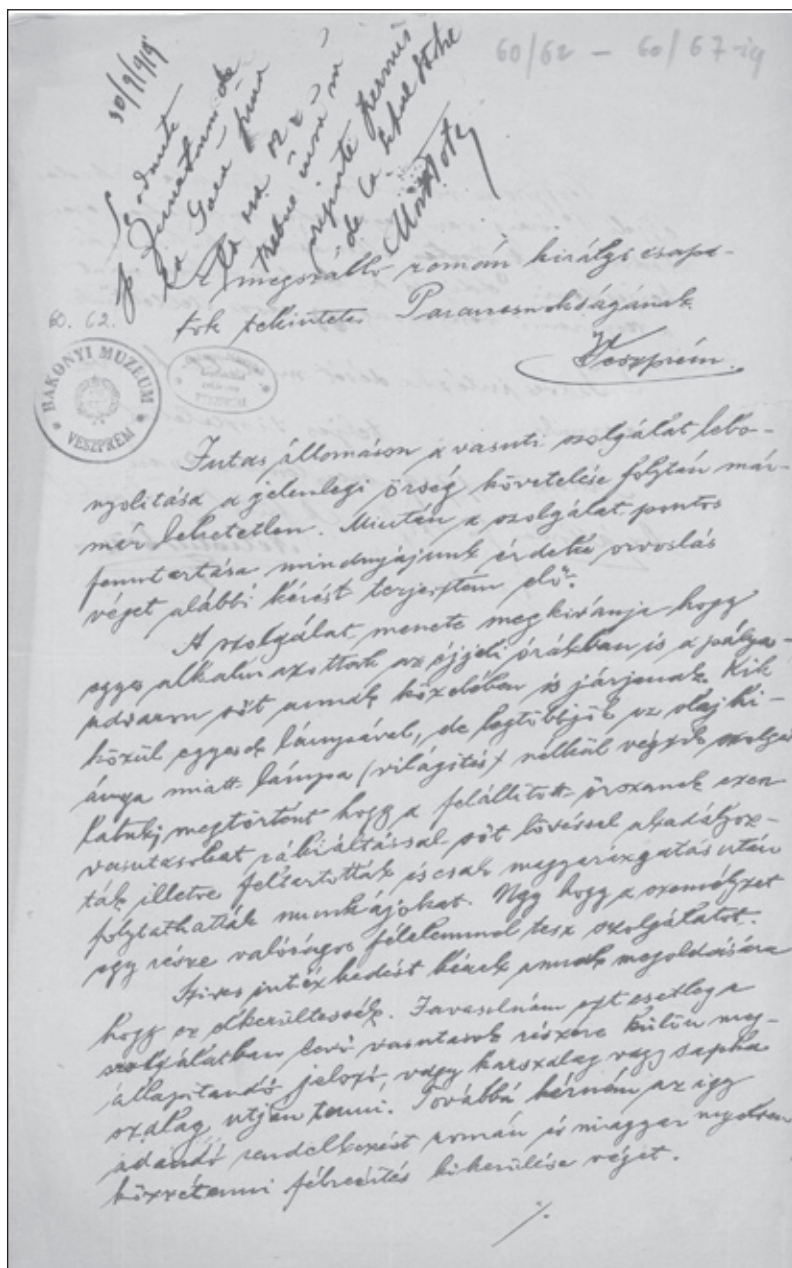 60/62 – 60/67-ig
30/9/919
Se admite
de
Gara
la ora
trebue
permis
de la
A megszálló román királyi csapa-
tok tekintetes Parancsnokságának
Veszprém.
60. 62.
BAKONYI MUZEUM
VESZPRÉM
Jutas állomáson a vasuti szolgálat lebo-
nyolitása a jelenlegi őrség követelése folytán már-
már lehetetlen. Miután a szolgálat pontos
fenntartása mindnyájunk érdeke orvoslás
véget alábbi kérést terjesztem elő.
A szolgálat menete megkivánja hogy
egyes alkalmazottak az éjjeli órákban is a pálya-
udvaron sőt annak közelében is járjanak. Kik
közül egyesek lámpával, de legtöbbjük az olaj hi-
ánya miatt lámpa (világitás) nélkül végzik szolgá-
latukj megtörtént hogy a felállitott őrszemek ezen
vasutasokat rákiáltással sőt lövéssel akadályoz-
ták illetve feltartották és csak magyarázgatás után
folytathatták munkájokat. Ugy hogy a személyzet
egy része valóságos félelemmel tesz szolgálatot.
Szives intézkedést kérek ennek megoldására
hogy ez elkerültessék. Javasolnám ezt esetleg a
szolgálatban levő vasutasok részére külön meg-
állapitandó jelző, vagy karszalag vagy sapka
szalag utján tenni. Továbbá kérném az igy
adandó rendelkezést román és magyar nyelven
közzétenni félreértés kikerülése véget.
./.